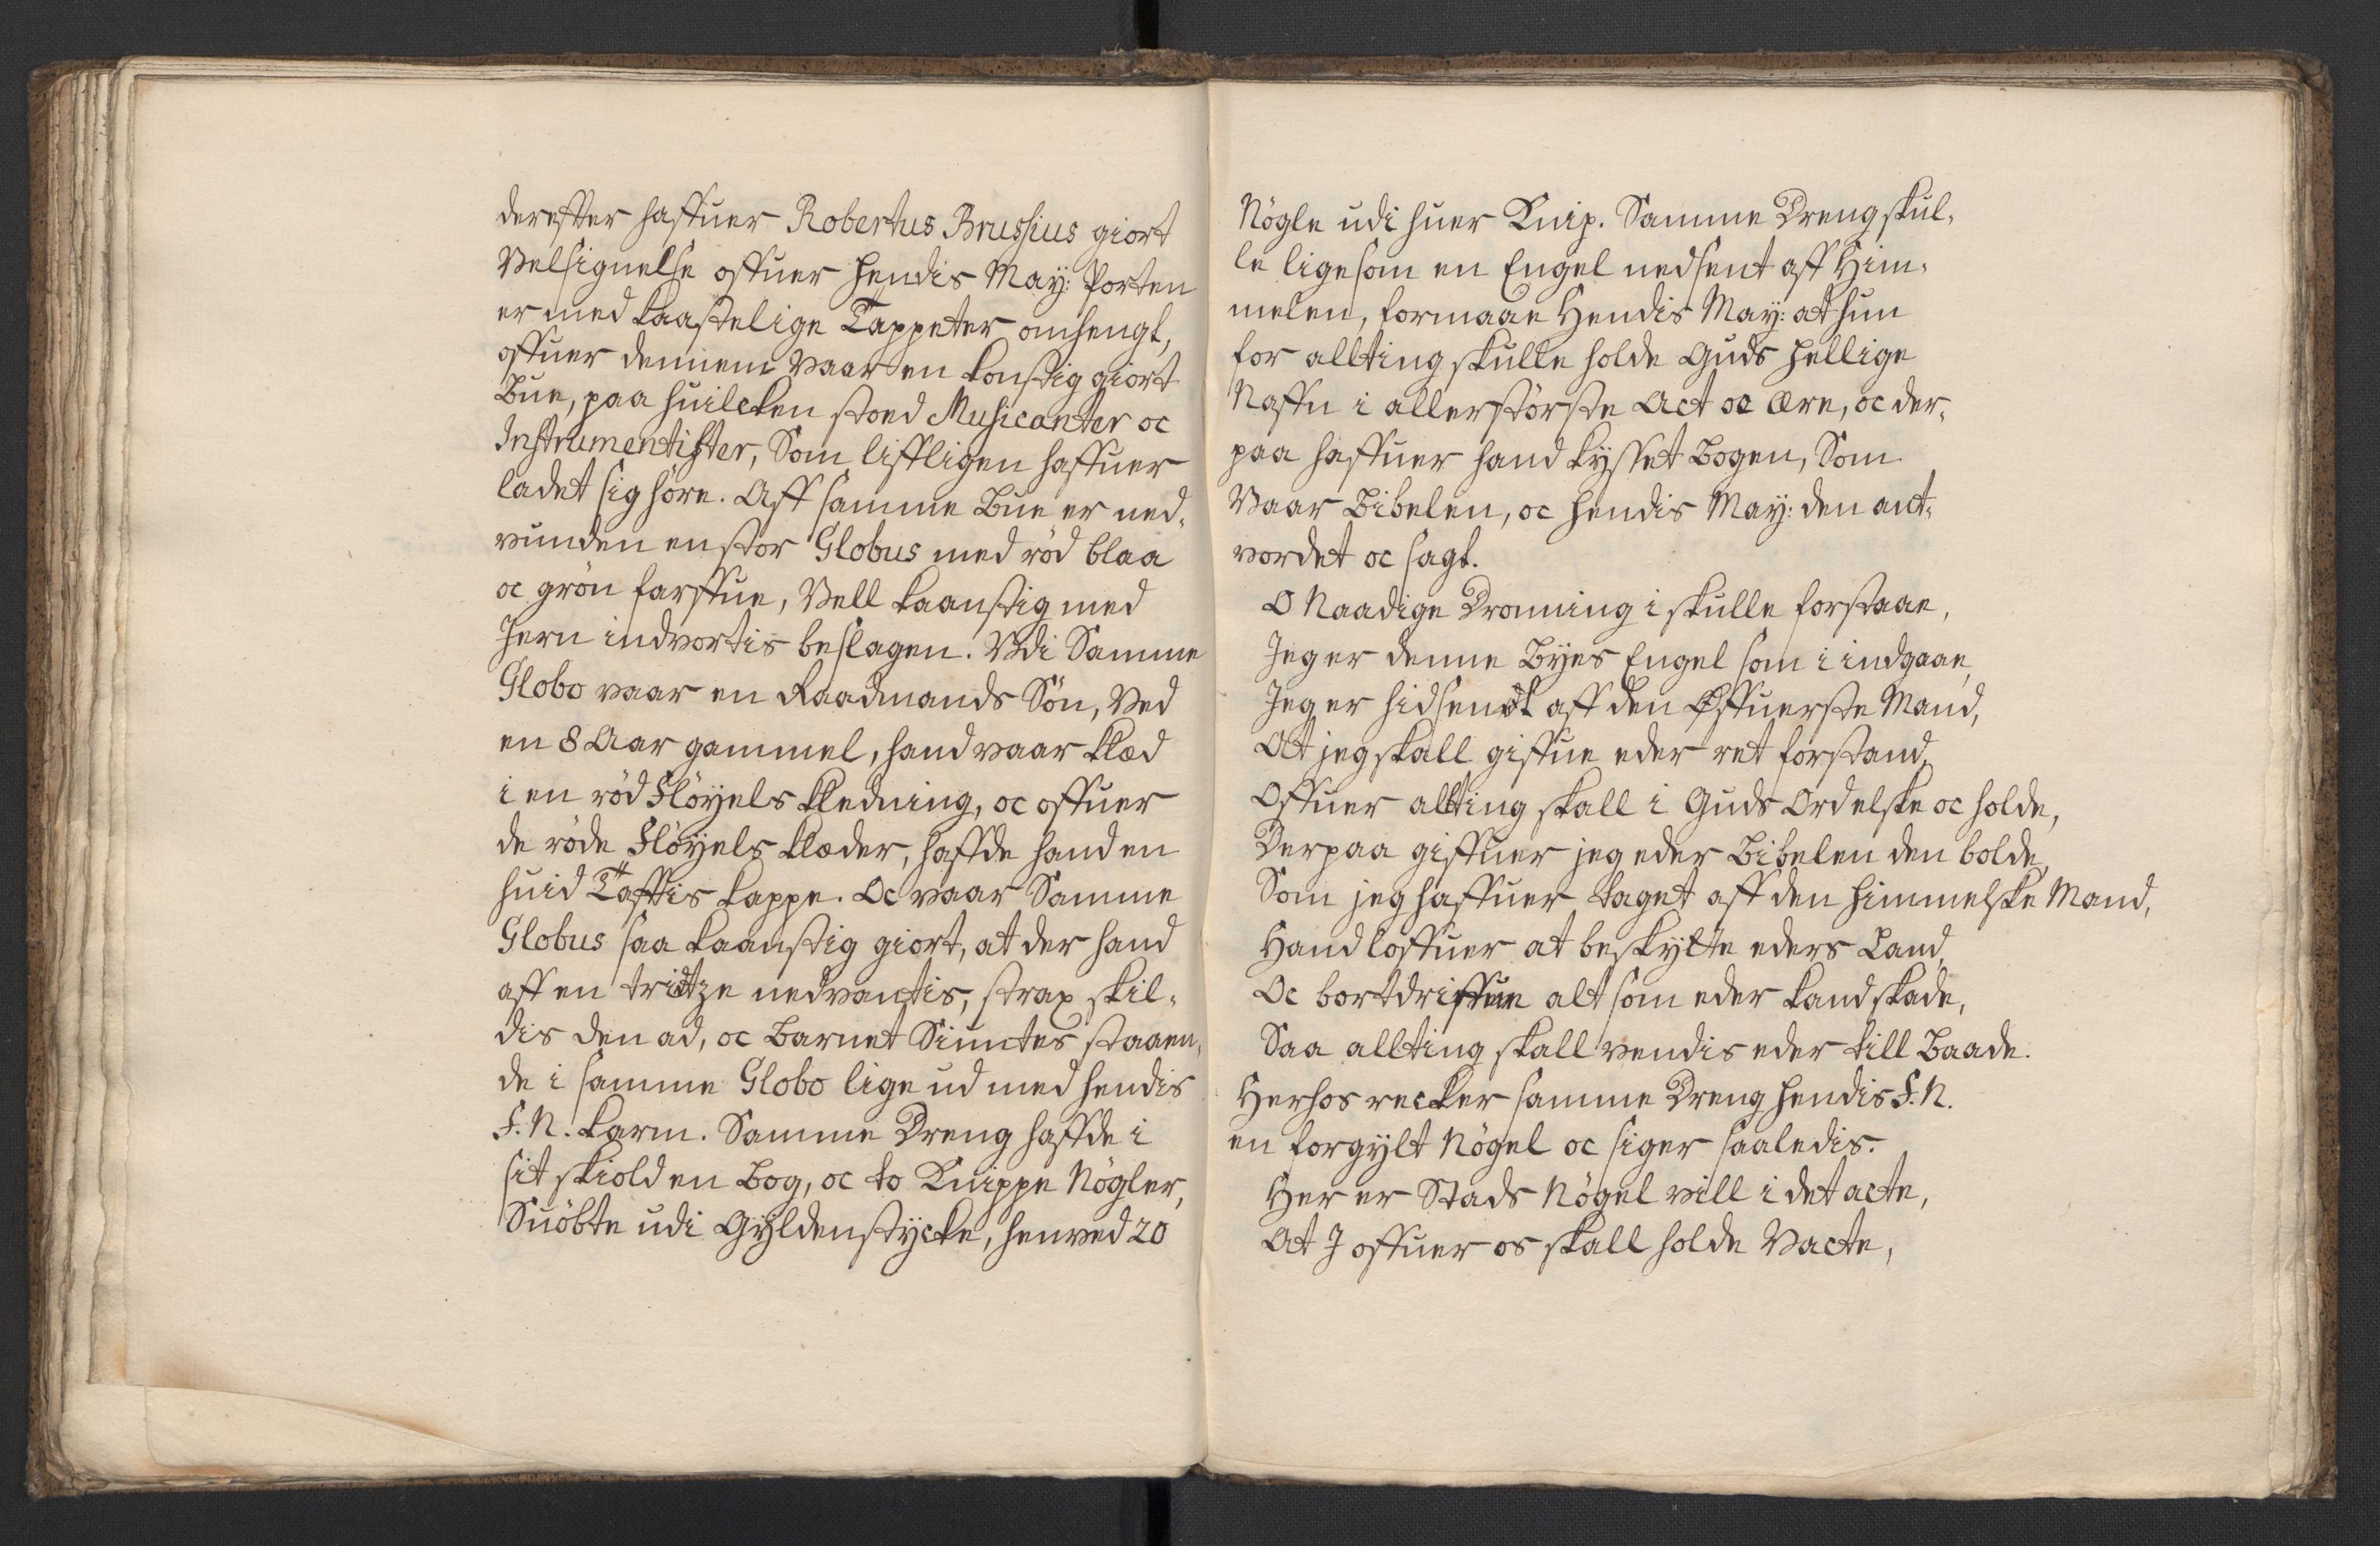 derefter haffuer Robertus Brussius giort
Velsignelse offuer hendis May: Porten
er med kaastelige Tappeter omhengt,
offuer dennem vaar en konstig giort
Bue, paa huilcken stoed Musicanter oc
Instrumentister, Som liffligen haffuer
ladet sig höre. Aff samme Bue er ned-
vunden en stor Globus med röd blaa
oc grön farffue, Vell kaanstig med
Jern indvortis beslagen. Vdi Samme
Globo vaar en Raadmands Sön, Ved
en 8 Aar gammel, hand vaar klæd
i en röd Flöyels kledning, oc offuer
de röde Flöyels klæder, haffde hand en
huid Taffts kappe. Oc vaar Samme
Globus saa kaanstig giort, at der hand
aff en tridtze nedvantis, strax skil-
dis den ad, oc Barnet Siuntes staaen-
de i samme Globo lige ud med hendis
F. N. karm. Samme Dreng haffde i
sit skiold en Bog, oc to Knippe Nögler,
Suöbte udi Gyldenstycke, henved 20
Nögle udi huer Knip. Samme Dreng skul-
le ligesom en Engel nedsent aff Him-
melen, formaae Hendis May: at hun
for allting skulle holde Guds hellige
Naffn i allerstörste Act oc Ære, oc der-
paa haffuer hand kysset Bogen, Som
Vaar Bibelen, oc hendis May: den ant-
vordet oc sagt.
O Naadige Droning i skulle forstaae,
Jeg er denne Byes Engel som i indgaae,
Jeg er hidsendt aff den Øffuerste Mand,
At jeg skall giffue eder ret forstand,
Offuer allting skall i Guds Ord elske oc holde,
Derpaa giffuer jeg eder Bibelen den bolde,
Som jeg haffuer taget aff den himmelske Mand,
Hand loffuer at beskytte eders Land,
Oc bortdriffue alt som eder kand skade,
Saa allting skall vendis eder till Baade.
Herhos recker samme Dreng hendis F. N.
en forgylt Nögel oc siger saaledis.
Her er Stads Nögel vill i det acte,
At J offuer os skall holde Vacte,